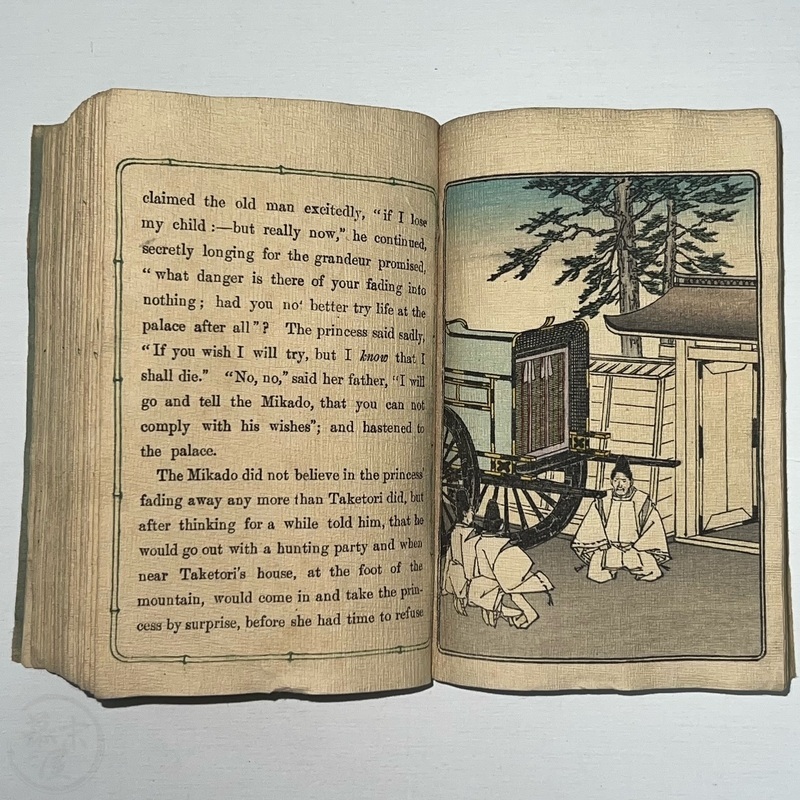 claimed the old man excitedly, "if I lose
my child :—but really now," he continued,
secretly longing for the grandeur promised,
"what danger is there of your fading into
nothing; had you not better try life at the
palace after all"? The princess said sadly,
"If you wish I will try, but I know that I
shall die." "No, no," said her father, "I will
go and tell the Mikado, that you can not
comply with his wishes"; and hastened to
the palace.
The Mikado did not believe in the princess'
fading away any more than Taketori did, but
after thinking for a while told him, that he
would go out with a hunting party and when
near Taketori's house, at the foot of the
mountain, would come in and take the prin-
cess by surprise, before she had time to refuse